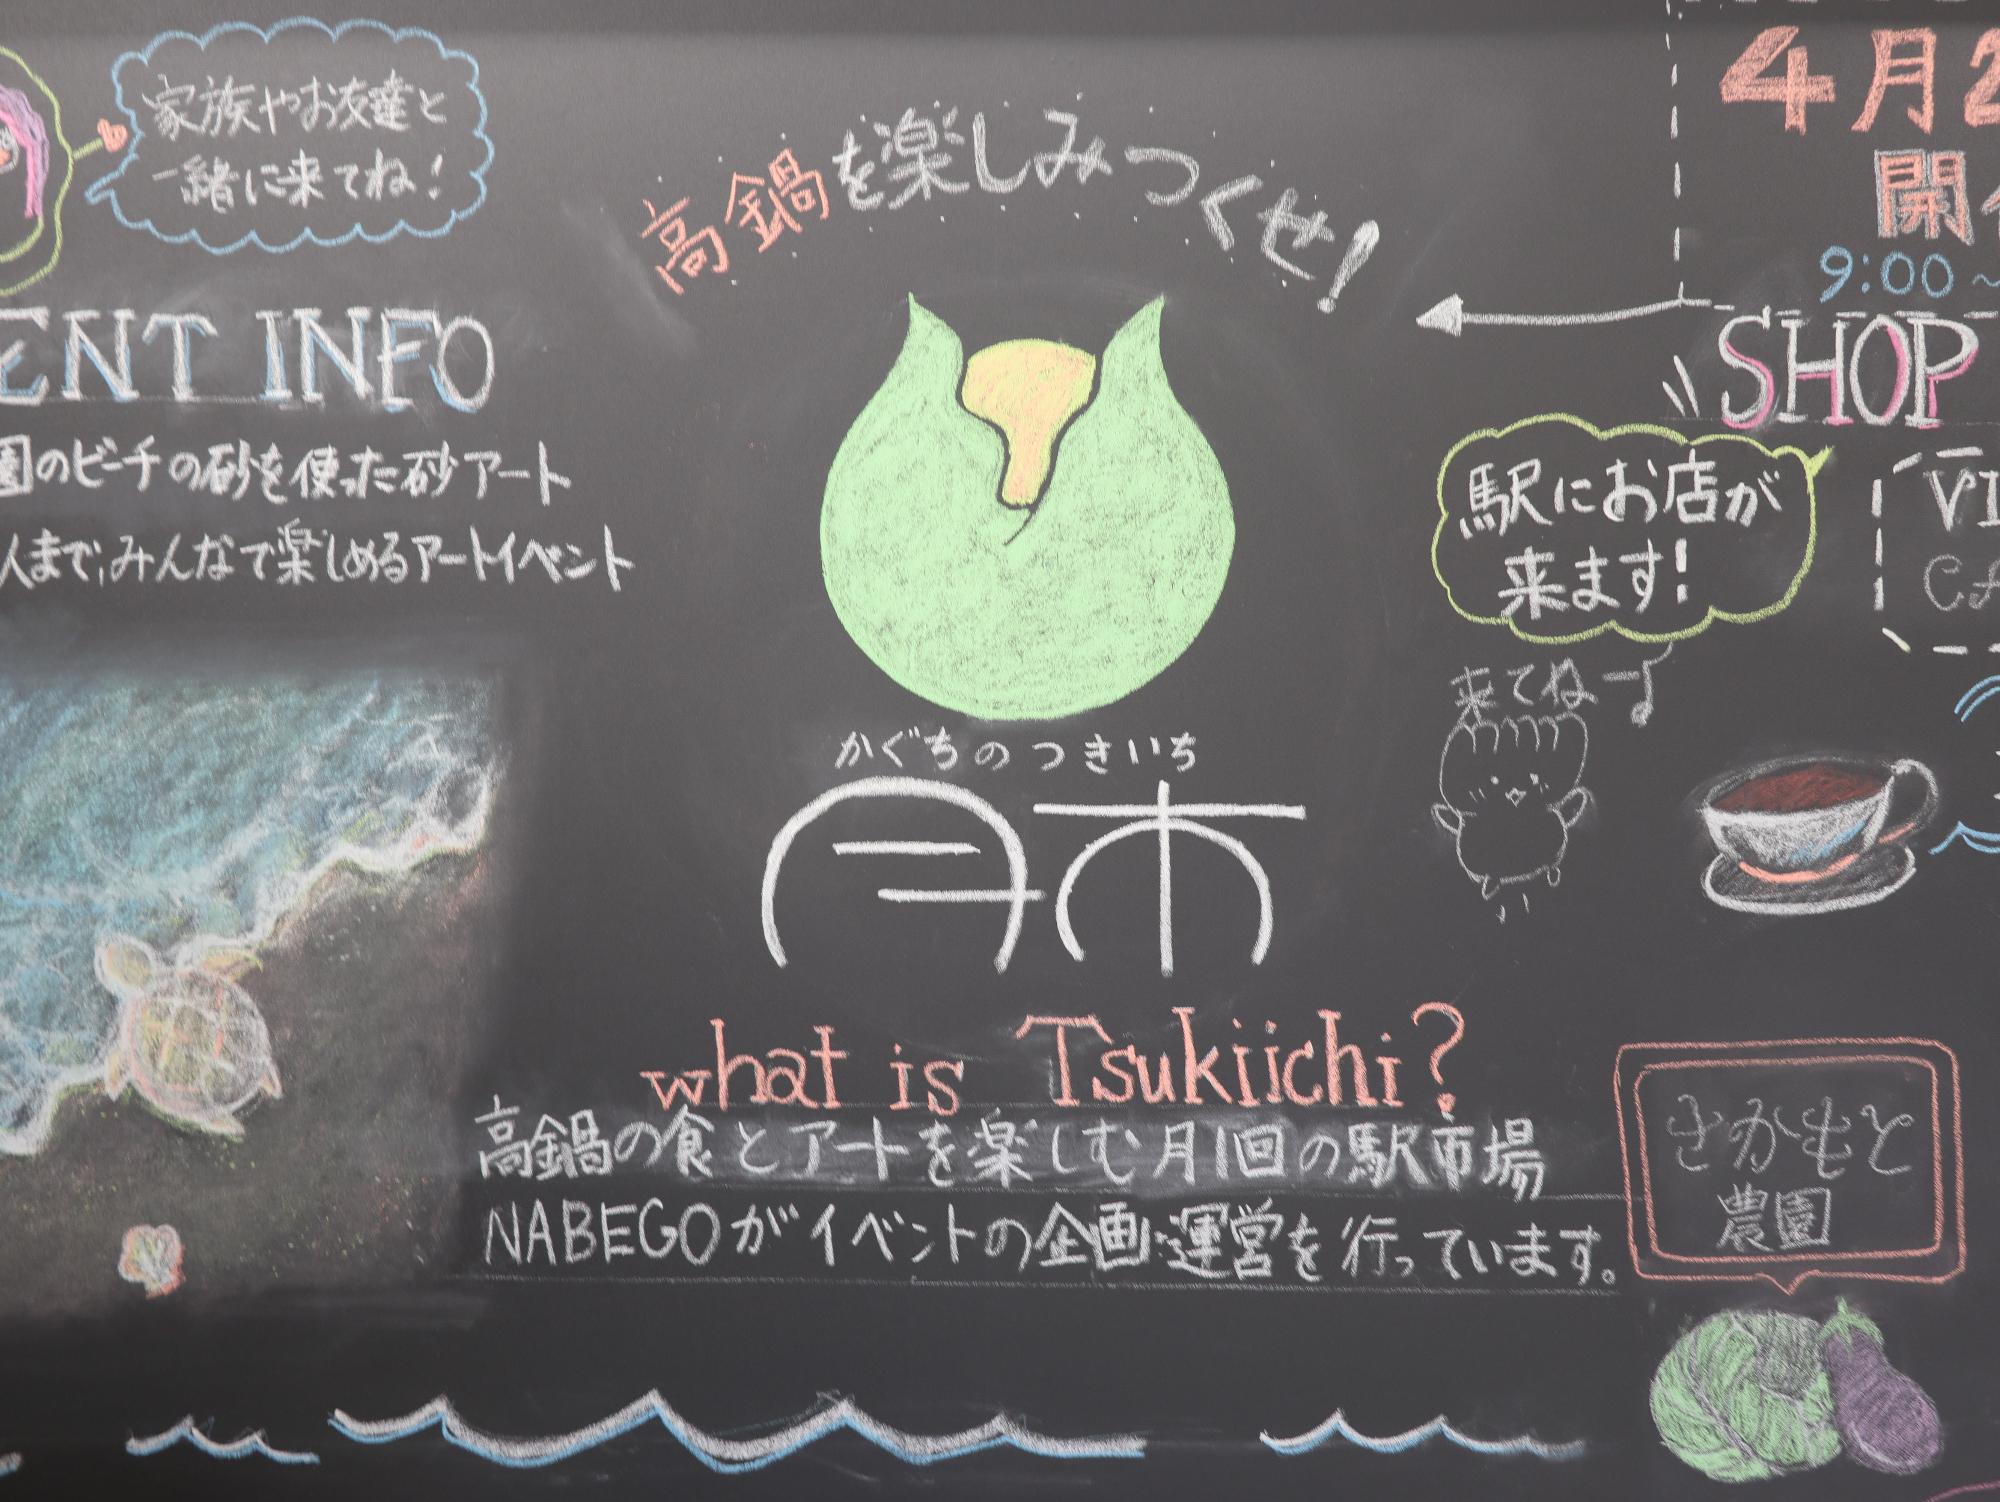 家族やお友達と
一緒に来てね!
ENT INFO
園のビーチの砂を使った砂アート
人まで、みんなで楽しめるアートイベント
高鍋を楽しみつくせ!
かぐちのつきいち
月市
what is Tsukiichi?
高鍋の食とアートを楽しむ月1回の駅市場
NABEGOがイベントの企画・運営を行っています。
4月2
開
9:00~
SHOP
駅にお店が
来ます!
来てねー♪
VI
CA
さかもと
農園